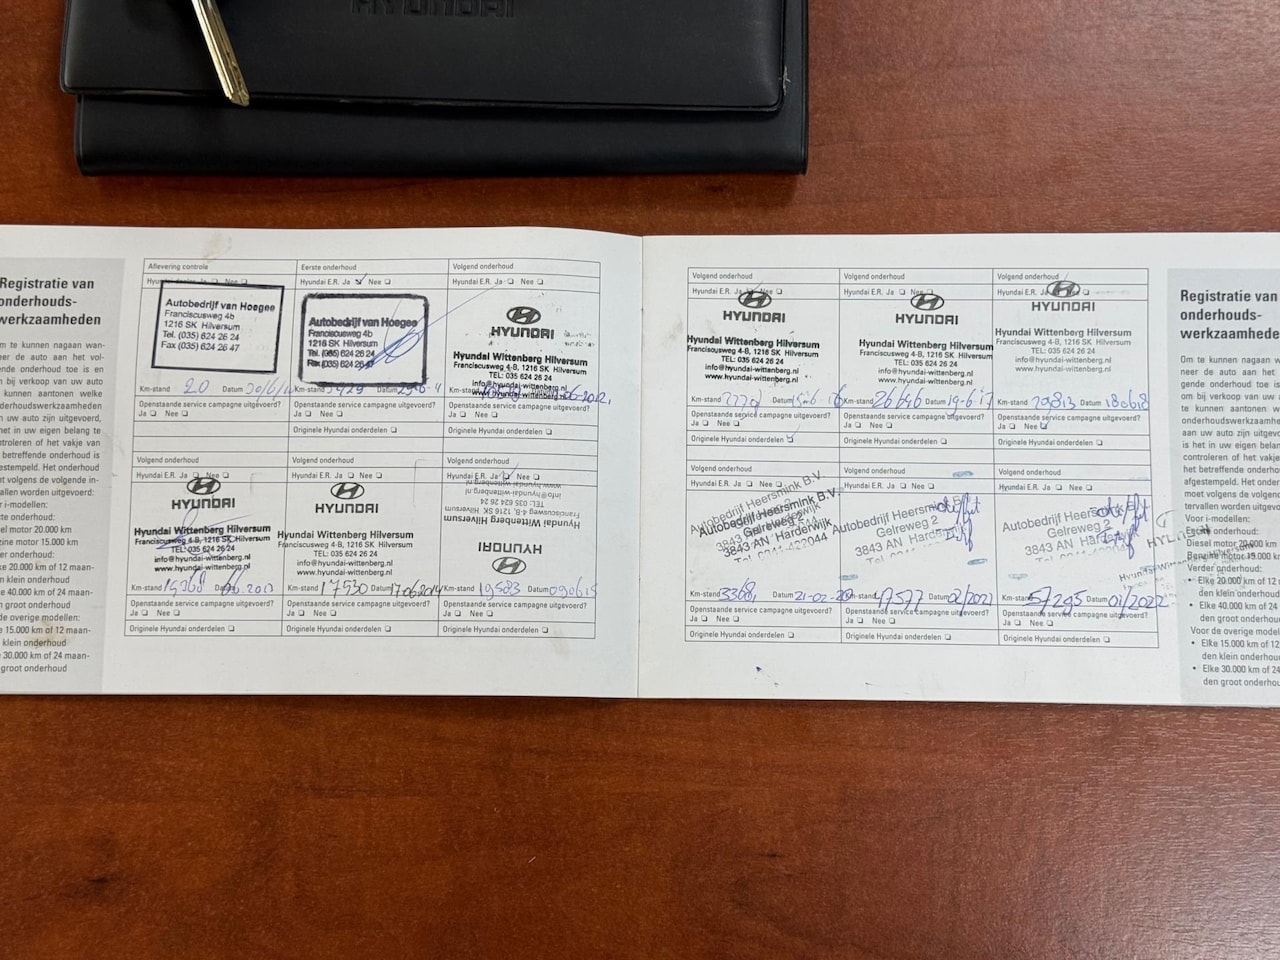 HYUNDAI
Registratie van
onderhouds-
werkzaamheden
m te kunnen nagaan wan-
eer de auto aan het vol-
ende onderhoud toe is en
n bij verkoop van uw auto
kunnen aantonen welke
derhoudswerkzaamheden
n uw auto zijn uitgevoerd,
het in uw eigen belang te
ntroleren of het vakje van
betreffende onderhoud is
estempeld. Het onderhoud
et volgens de volgende in-
vallen worden uitgevoerd:
r i-modellen:
ste onderhoud:
sel motor 20.000 km
zine motor 15.000 km
er onderhoud:
ke 20.000 km of 12 maan-
n klein onderhoud
e 40.000 km of 24 maan-
n groot onderhoud
de overige modellen:
e 15.000 km of 12 maan-
klein onderhoud
e 30.000 km of 24 maan-
groot onderhoud
Aflevering controle
Autobedrijf van Hoegee
Franciscusweg 4b
1216 SK Hilversum
Tel. (035) 624 26 24
Fax (035) 624 26 47
Km-stand 20 Datum
Openstaande service campagne uitgevoerd?
Ja Nee
Eerste onderhoud
Hyundai E.R. Ja Nee
Autobedrijf van Hoegee
Franciscusweg 4b
1216 SK Hilversum
Tel. (035) 624 26 24
Fax (035) 624 26 47
Km-stand Datum
Openstaande service campagne uitgevoerd?
Ja Nee
Originele Hyundai onderdelen
Volgend onderhoud
Hyundai E.R. Ja Nee
HYUNDAI
Hyundai Wittenberg Hilversum
Franciscusweg 4-B, 1216 SK Hilversum
TEL: 035 624 26 24
info@hyundai-wittenberg.nl
www.hyundai-wittenberg.nl
Openstaande service campagne uitgevoerd?
Ja Nee
Originele Hyundai onderdelen
Volgend onderhoud
Hyundai E.R. Ja Nee
HYUNDAI
Hyundai Wittenberg Hilversum
Franciscusweg 4-B, 1216 SK Hilversum
TEL: 035 624 26 24
info@hyundai-wittenberg.nl
www.hyundai-wittenberg.nl
Km-stand Datum
Openstaande service campagne uitgevoerd?
Ja Nee
Originele Hyundai onderdelen
Volgend onderhoud
Hyundai E.R. Ja Nee
HYUNDAI
Hyundai Wittenberg Hilversum
Franciscusweg 4-B, 1216 SK Hilversum
TEL: 035 624 26 24
info@hyundai-wittenberg.nl
www.hyundai-wittenberg.nl
Km-stand 17530 Datum 17062014
Openstaande service campagne uitgevoerd?
Ja Nee
Originele Hyundai onderdelen
Volgend onderhoud
Hyundai E.R. Ja Nee
HYUNDAI
Hyundai Wittenberg Hilversum
Franciscusweg 4-B, 1216 SK Hilversum
TEL: 035 624 26 24
info@hyundai-wittenberg.nl
www.hyundai-wittenberg.nl
Km-stand 19583 Datum 090615
Openstaande service campagne uitgevoerd?
Ja Nee
Originele Hyundai onderdelen
Volgend onderhoud
Hyundai E.R. Ja Nee
HYUNDAI
Hyundai Wittenberg Hilversum
Franciscusweg 4-B, 1216 SK Hilversum
TEL: 035 624 26 24
info@hyundai-wittenberg.nl
www.hyundai-wittenberg.nl
Km-stand Datum
Openstaande service campagne uitgevoerd?
Ja Nee
Originele Hyundai onderdelen
Volgend onderhoud
Hyundai E.R. Ja Nee
HYUNDAI
Hyundai Wittenberg Hilversum
Franciscusweg 4-B, 1216 SK Hilversum
TEL: 035 624 26 24
info@hyundai-wittenberg.nl
www.hyundai-wittenberg.nl
Km-stand 26646 Datum 19-6-17
Openstaande service campagne uitgevoerd?
Ja Nee
Originele Hyundai onderdelen
Volgend onderhoud
Hyundai E.R. Ja
HYUNDAI
Hyundai Wittenberg Hilversum
Franciscusweg 4-B, 1216 SK Hilversum
TEL: 035 624 26 24
info@hyundai-wittenberg.nl
www.hyundai-wittenberg.nl
Km-stand Datum 180618
Openstaande service campagne uitgevoerd?
Ja Nee
Originele Hyundai onderdelen
Volgend onderhoud
Hyundai E.R. Ja Nee
Autobedrijf Heersmink B.V.
Gelreweg 2
3843 AN Harderwijk
Tel. 0341-422044
Km-stand Datum
Openstaande service campagne uitgevoerd?
Ja Nee
Originele Hyundai onderdelen
Volgend onderhoud
Hyundai E.R. Ja Nee
Autobedrijf Heersmink
Gelreweg 2
3843 AN
Km-stand 47577 Datum 02/2021
Openstaande service campagne uitgevoerd?
Ja Nee
Originele Hyundai onderdelen
Volgend onderhoud
Hyundai E.R. Ja Nee
Autobedrijf Heersmink
Gelreweg 2
3843 AN
Km-stand 57295 Datum 01/2022
Openstaande service campagne uitgevoerd?
Ja Nee
Originele Hyundai onderdelen
Registratie van
onderhouds-
werkzaamheden
Om te kunnen nagaan w
neer de auto aan het
gende onderhoud toe is
om bij verkoop van uw a
te kunnen aantonen
onderhoudswerkzaamhe
aan uw auto zijn uitgevo
is het in uw eigen belang
controleren of het vakje
het betreffende onderhou
afgestempeld. Het onder
moet volgens de volgend
tervallen worden uitgevoer
Voor i-modellen:
Eerste onderhoud:
Diesel motor 20.000 km
Benzine motor 15.000 km
Verder onderhoud:
• Elke 20.000 km of 12
den klein onderhoud
• Elke 40.000 km of 24
den groot onderhoud
Voor de overige modellen:
• Elke 15.000 km of 12
den klein onderhoud
• Elke 30.000 km of 24
den groot onderhou